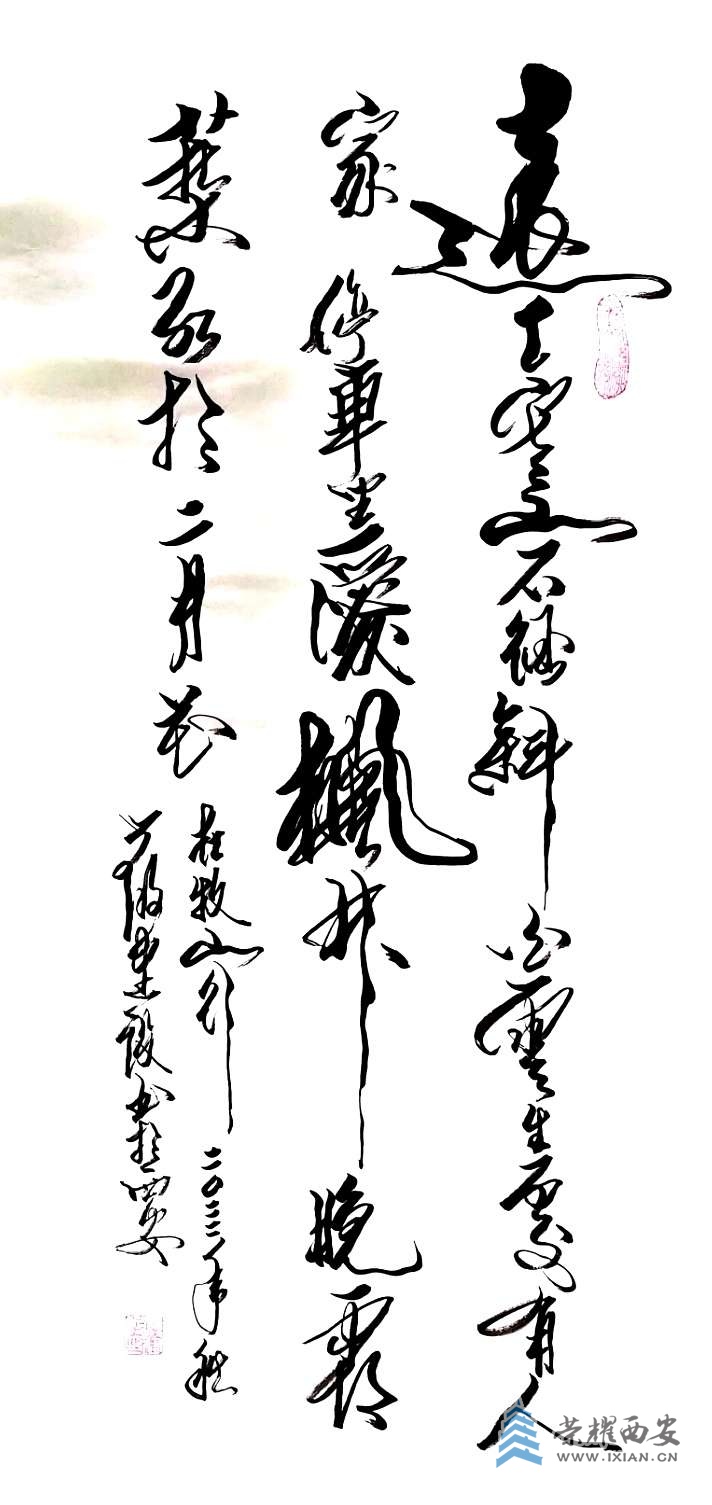 遠上寒山石徑斜白雲生處有人
家停車坐愛楓林晚霜
葉紅於二月花
杜牧山行二〇二二年秋
書於西安
荣耀西安
WWW.IXIAN.CN